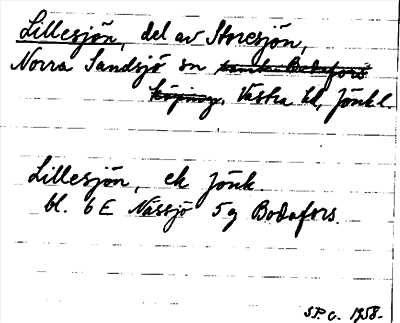 Lillesjön, del av Storesjön,
Norra Sandsjö sn samt Bodafors
köping, Västra hd, Jönk l.
Lillesjön, ek Jönk.
bl. 6 E Nässjö 5g Bodafors.
S.P.G. 1958.